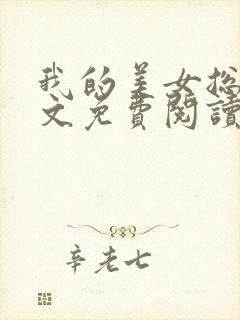 我的美女总
文免费阅读
辛老七